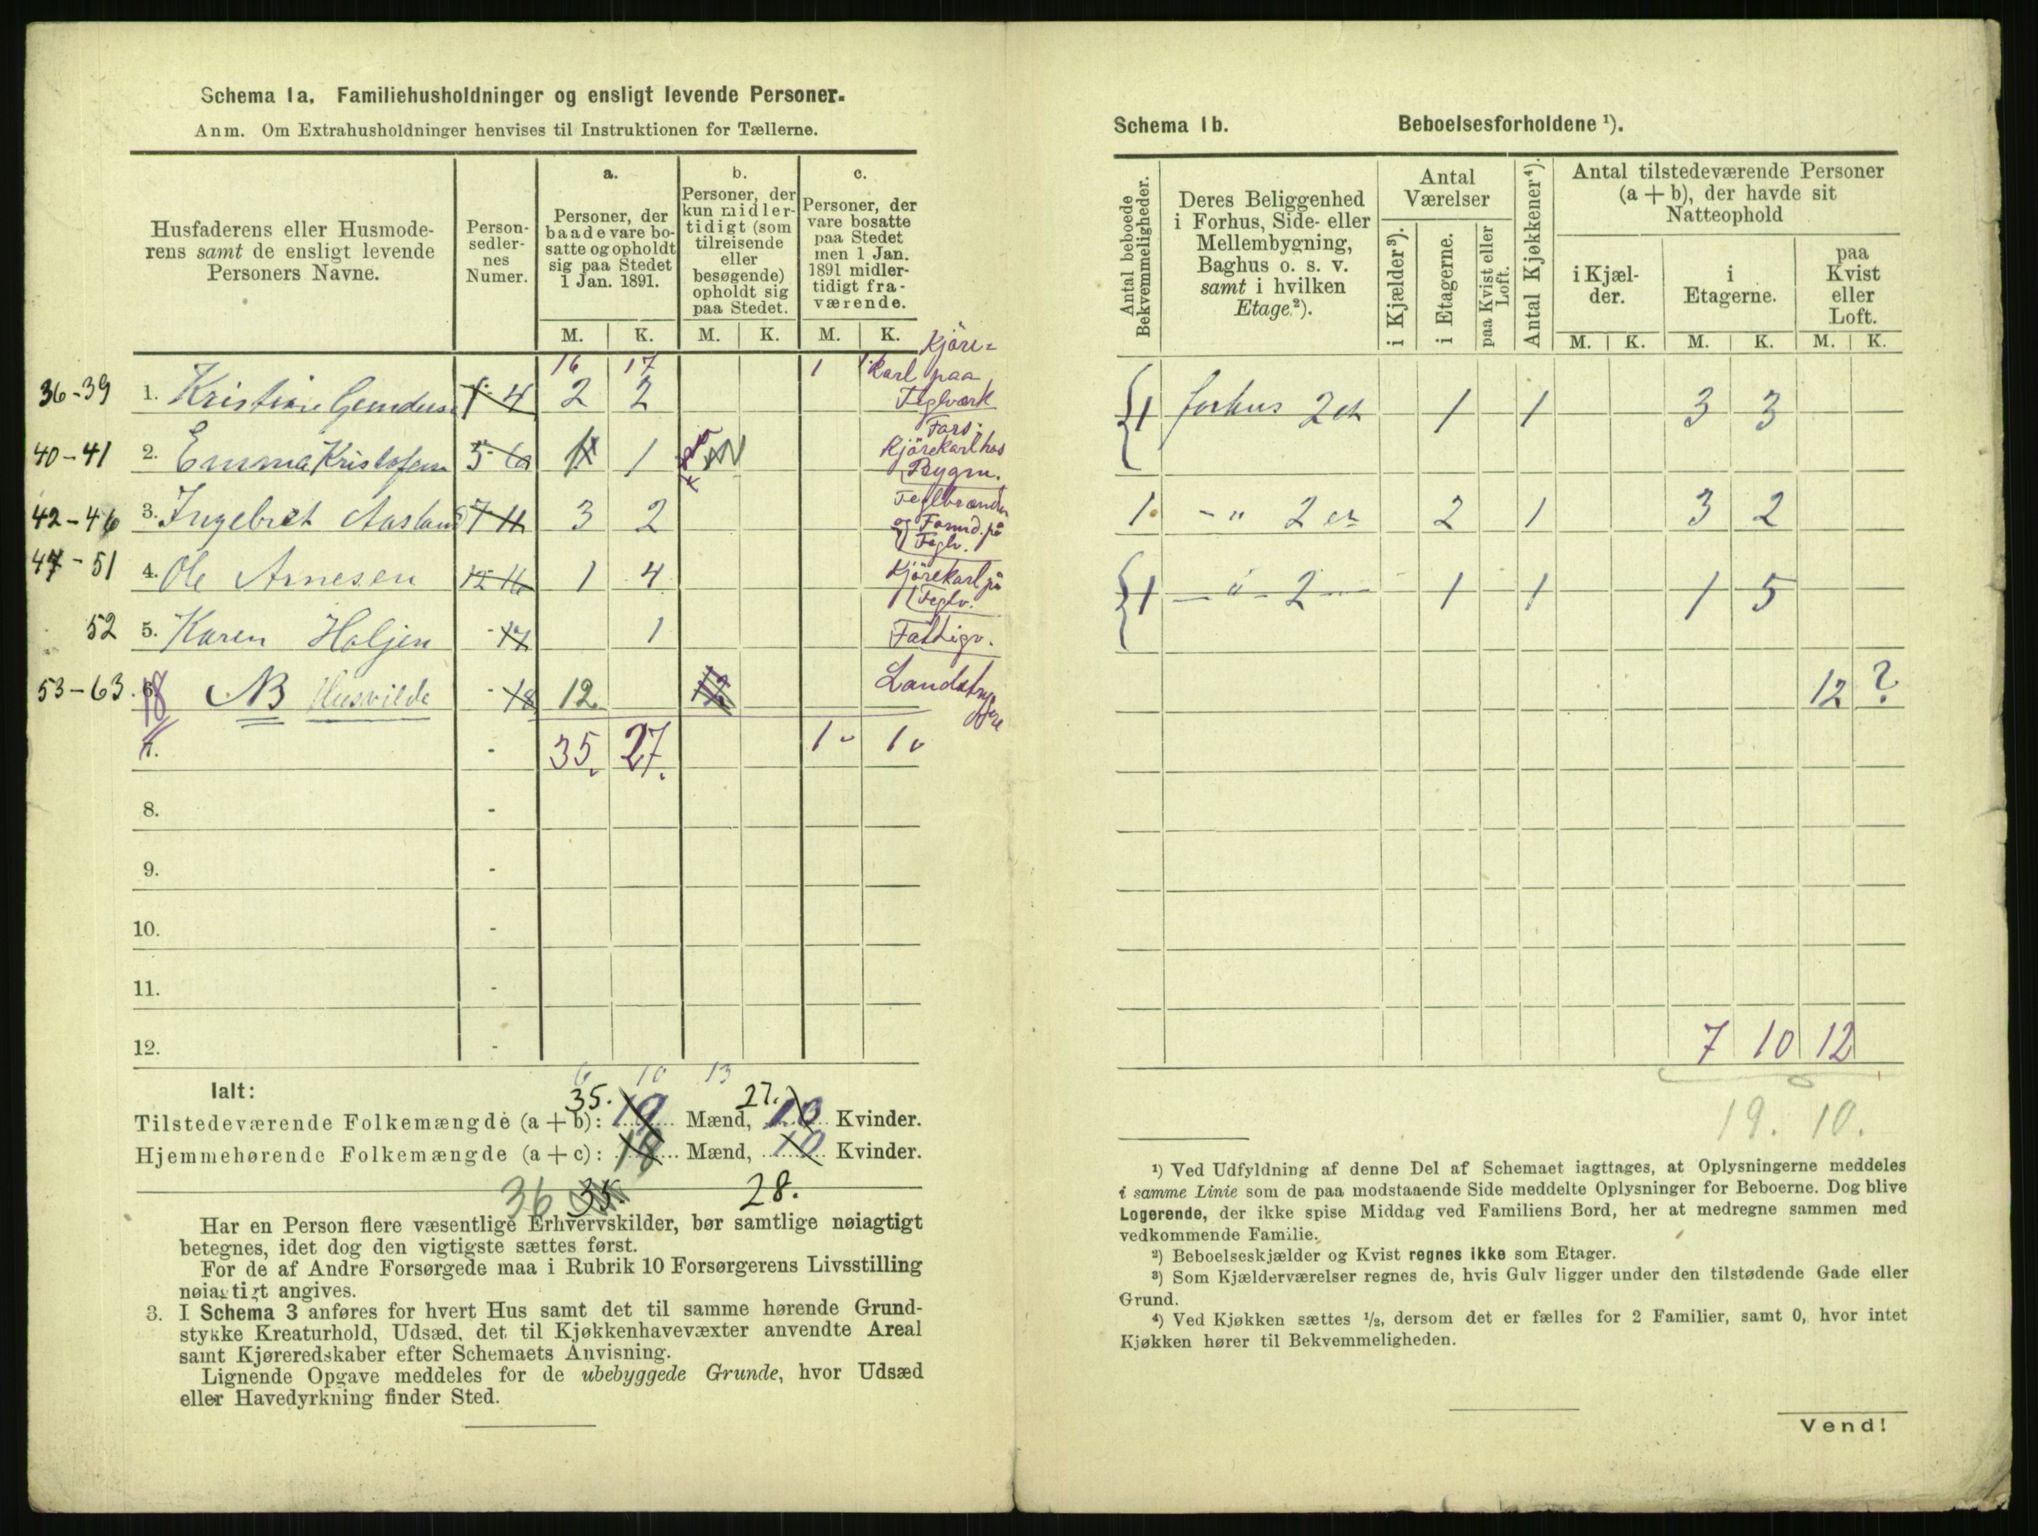 Schema 1a. Familiehusholdninger og ensligt levende Personer.
Anm. Om Extrahusholdninger henvises til Instruktionen for Tællerne.
Husfaderens eller Husmode-
rens samt de ensligt levende
Personers Navne.
Person-
sedler-
nes
Numer.
a.
Personer, der
baade vare bo-
satte og opholdt
sig paa Stedet
1 Jan. 1891.
b.
Personer, der
kun midler-
tidigt (som
tilreisende
eller
besøgende)
opholdt sig
paa Stedet.
c.
Personer, der
vare bosatte
paa Stedet
men 1 Jan.
1891 midler-
tidigt fra-
værende.
M. K. M. K. M. K.
16 17 1 1
36-39 1. Kristian Gunders 1-4 2 2 Kjöre-
karl paa
Teglværk
40-41 2. Emma Kristofersen 5-6 1 Fors:
Kjörekarl hos
Bygm.
42-46 3. Ingebret Aasland 7-11 3 2 Teglbrænder
og Formd. på
Teglv.
47-51 4. Ole Arnesen 12-16 1 4 Kjörekarl på
Teglv.
52 5. Karen Haljen 17 1 Fattigv.
53-63 6. NB Husvilde 18 12 Landstrygere
7. - 35. 27. 1 1
8. -
9. -
10. -
11. -
12. -
Ialt:
6 10 13
35. 27.
Tilstedeværende Folkemængde (a + b): 19 Mænd, 10 Kvinder.
Hjemmehørende Folkemængde (a + c): 18 Mænd, 10 Kvinder.
36 35. 28.
Har en Person flere væsentlige Erhvervskilder, bør samtlige nøiagtigt
betegnes, idet dog den vigtigste sættes først.
For de af Andre Forsørgede maa i Rubrik 10 Forsørgerens Livsstilling
nøiagtigt angives.
3. I Schema 3 anføres for hvert Hus samt det til samme hørende Grund-
stykke Kreaturhold, Udsæd, det til Kjøkkenhavevæxter anvendte Areal
samt Kjøreredskaber efter Schemaets Anvisning.
Lignende Opgave meddeles for de ubebyggede Grunde, hvor Udsæd
eller Havedyrkning finder Sted.
Schema 1b. Beboelsesforholdene ¹).
Antal beboede
Bekvemmeligheder.
Deres Beliggenhed
i Forhus, Side- eller
Mellembygning,
Baghus o. s. v.
samt i hvilken
Etage ²).
Antal
Værelser
i Kjælder ³).
i Etagerne.
paa Kvist eller
Loft.
Antal Kjøkkener ⁴).
Antal tilstedeværende Personer
(a + b), der havde sit
Natteophold
i Kjæl-
der.
i
Etagerne.
paa
Kvist
eller
Loft.
M. K. M. K. M. K.
1 forhus 2 et 1 1 3 3
1 - " 2 et 2 1 3 2
1 - " - 2 - 1 1 1 5
12 ?
7 10 12
19. 10.
¹) Ved Udfyldning af denne Del af Schemaet iagttages, at Oplysningerne meddeles
i samme Linie som de paa modstaaende Side meddelte Oplysninger for Beboerne. Dog blive
Logerende, der ikke spise Middag ved Familiens Bord, her at medregne sammen med
vedkommende Familie.
²) Beboelseskjælder og Kvist regnes ikke som Etager.
³) Som Kjælderværelser regnes de, hvis Gulv ligger under den tilstødende Gade eller
Grund.
⁴) Ved Kjøkken sættes ¹/₂, dersom det er fælles for 2 Familier, samt 0, hvor intet
Kjøkken hører til Bekvemmeligheden.
Vend!